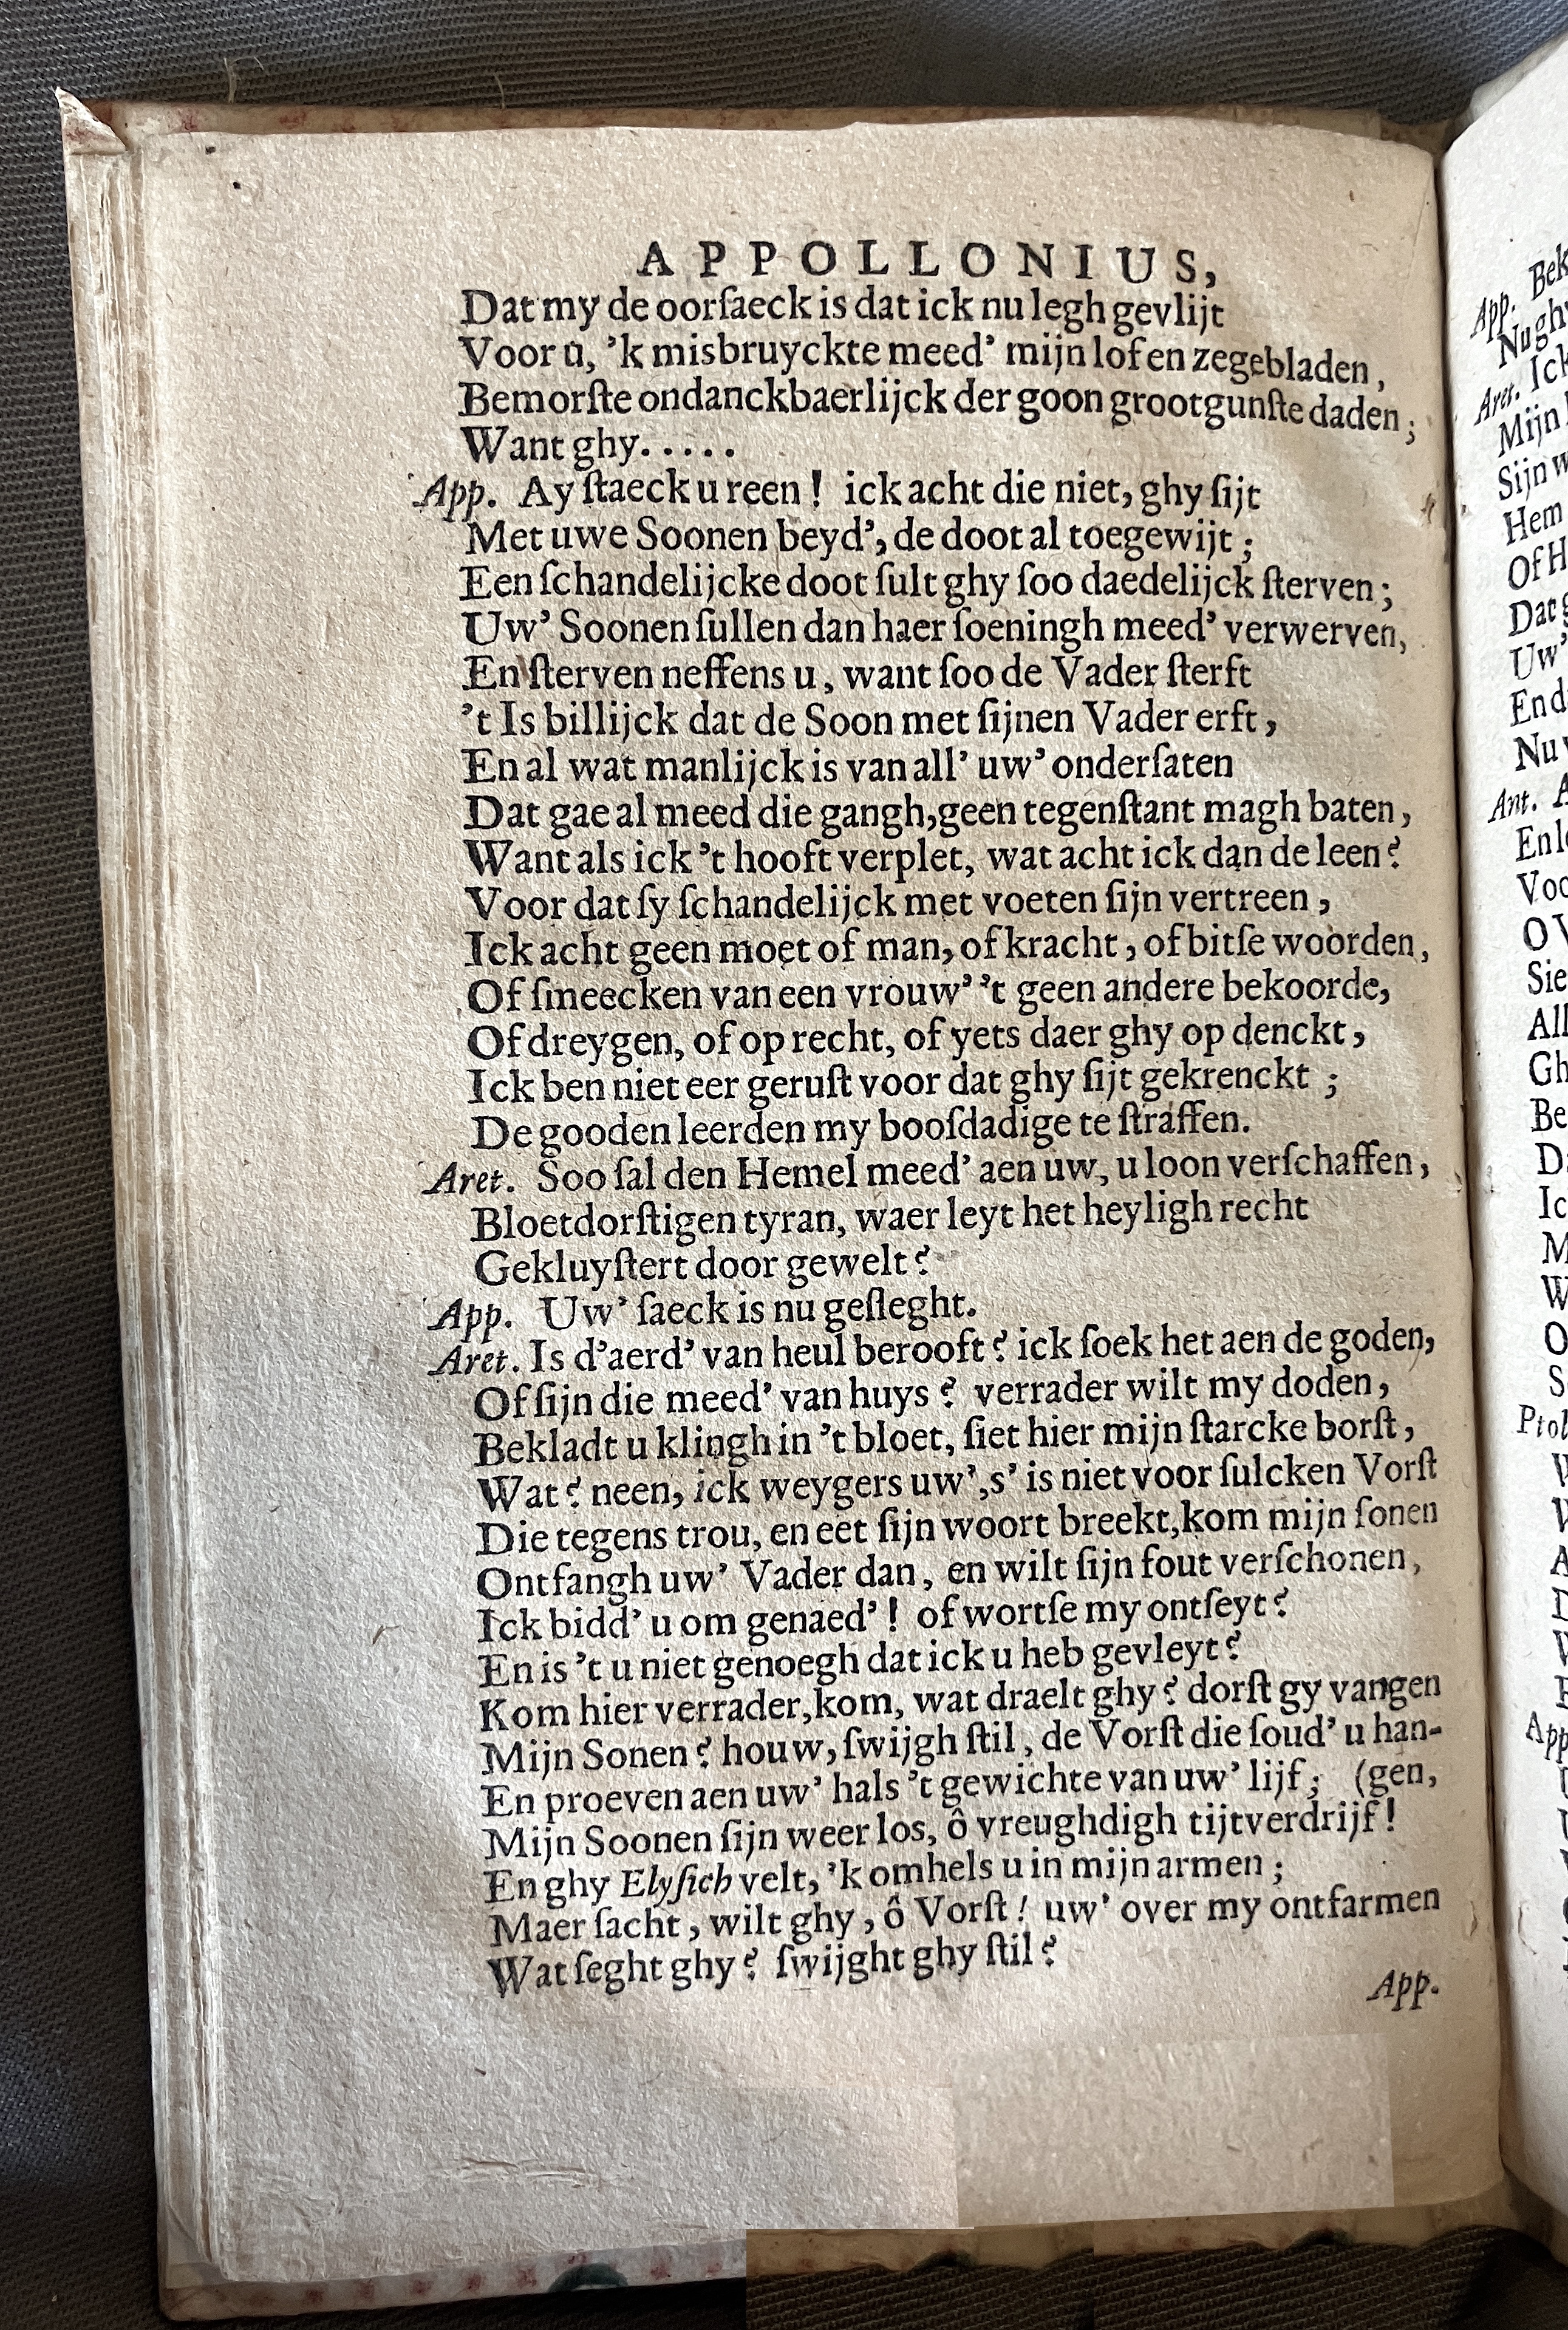 APPOLLONIUS,
Dat my de oorſaeck is dat ick nu legh gevlijt
Voor u, ’k misbruyckte meed’ mijn lof en zegebladen,
Bemorſte ondanckbaerlijck der goon grootgunſte daden;
Want ghy.....
App. Ay ſtaeck u reen! ick acht die niet, ghy ſijt
Met uwe Soonen beyd’, de doot al toegewijt;
Een ſchandelijcke doot ſult ghy ſoo daedelijck ſterven;
Uw’ Soonen ſullen dan haer ſoeningh meed’ verwerven,
En ſterven neffens u, want ſoo de Vader ſterft
’t Is billijck dat de Soon met ſijnen Vader erft,
En al wat manlijck is van all’ uw’ onderſaten
Dat gae al meed die gangh, geen tegenſtant magh baten,
Want als ick ’t hooft verplet, wat acht ick dan de leen?
Voor dat ſy ſchandelijck met voeten ſijn vertreen,
Ick acht geen moet of man, of kracht, of bitſe woorden,
Of ſmeecken van een vrouw’ ’t geen andere bekoorde,
Of dreygen, of op recht, of yets daer ghy op denckt,
Ick ben niet eer geruſt voor dat ghy ſijt gekrenckt;
De gooden leerden my boofdadige te ſtraffen.
Aret. Soo ſal den Hemel meed’ aen uw, u loon verſchaffen,
Bloetdorſtigen tyran, waer leyt het heyligh recht
Gekluyſtert door gewelt?
App. Uw’ ſaeck is nu geſleght.
Aret. Is d’aerd’ van heul berooft? ick ſoek het aen de goden,
Of ſijn die meed’ van huys? verrader wilt my doden,
Bekladt u klingh in ’t bloet, ſiet hier mijn ſtarcke borſt,
Wat? neen, ick weygers uw’, s’ is niet voor ſulcken Vorſt
Die tegens trou, en eet ſijn woort breekt, kom mijn ſonen
Ontfangh uw’ Vader dan, en wilt ſijn fout verſchonen,
Ick bidd’ u om genaed’! of wortſe my ontſeyt?
En is ’t u niet genoegh dat ick u heb gevleyt?
Kom hier verrader, kom, wat draelt ghy? dorſt gy vangen
Mijn Sonen? houw, ſwijgh ſtil, de Vorſt die ſoud’ u han-
En proeven aen uw’ hals ’t gewichte van uw’ lijf; (gen,
Mijn Soonen ſijn weer los, ô vreughdigh tijtverdrijf!
En ghy Elyſich velt, ’k omhels u in mijn armen;
Maer ſacht, wilt ghy, ô Vorſt! uw’ over my ontfarmen
Wat ſeght ghy? ſwijght ghy ſtil?
App.
App. Bek
Nu ghy
Aret. Ick
Mijn
Sijn w
Hem
Of H
Dat g
Uw’
En d
Nu
Ant. A
En
Voo
O
Sie
All
Gh
Be
D
Ic
M
W
O
S
Ptol
App